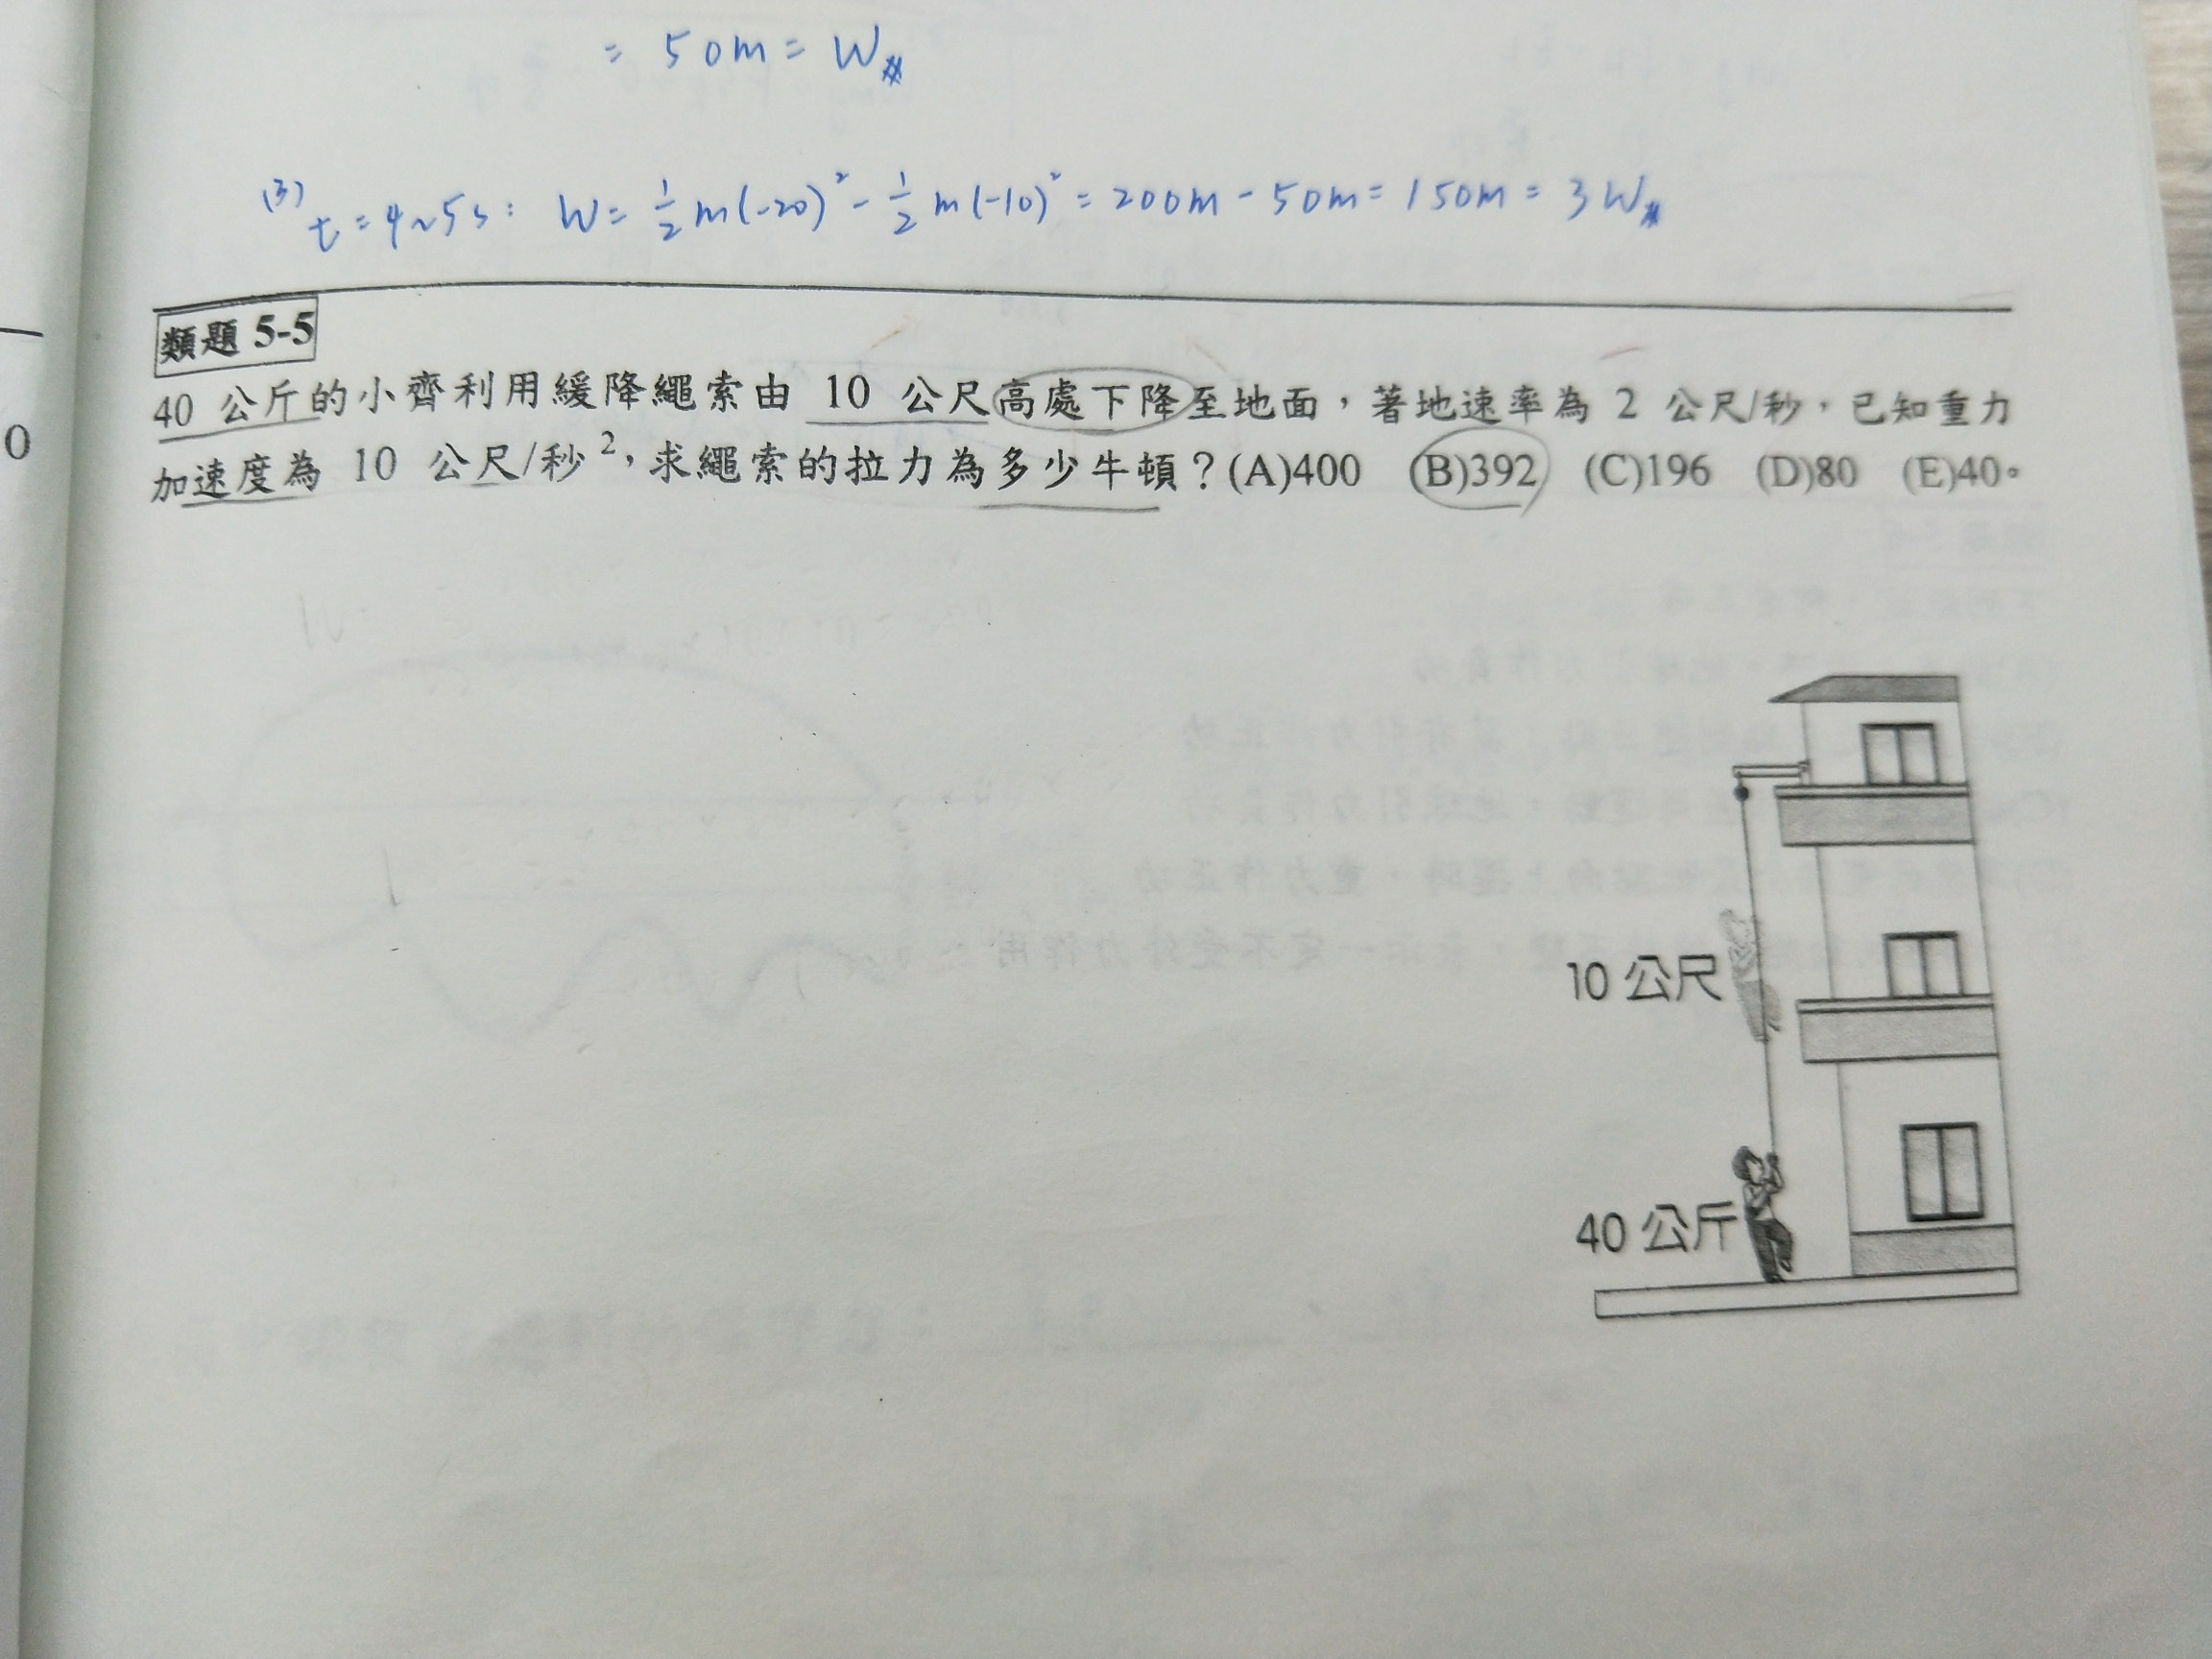 = 50m = W#
(3) t = 4~5s: W = 1/2 m(-20)² - 1/2 m(-10)² = 200m - 50m = 150m = 3W#
類題 5-5
40 公斤的小齊利用緩降繩索由 10 公尺高處下降至地面，著地速率為 2 公尺/秒，已知重力
0
加速度為 10 公尺/秒²，求繩索的拉力為多少牛頓？(A)400 (B)392 (C)196 (D)80 (E)40。
10 公尺
40 公斤